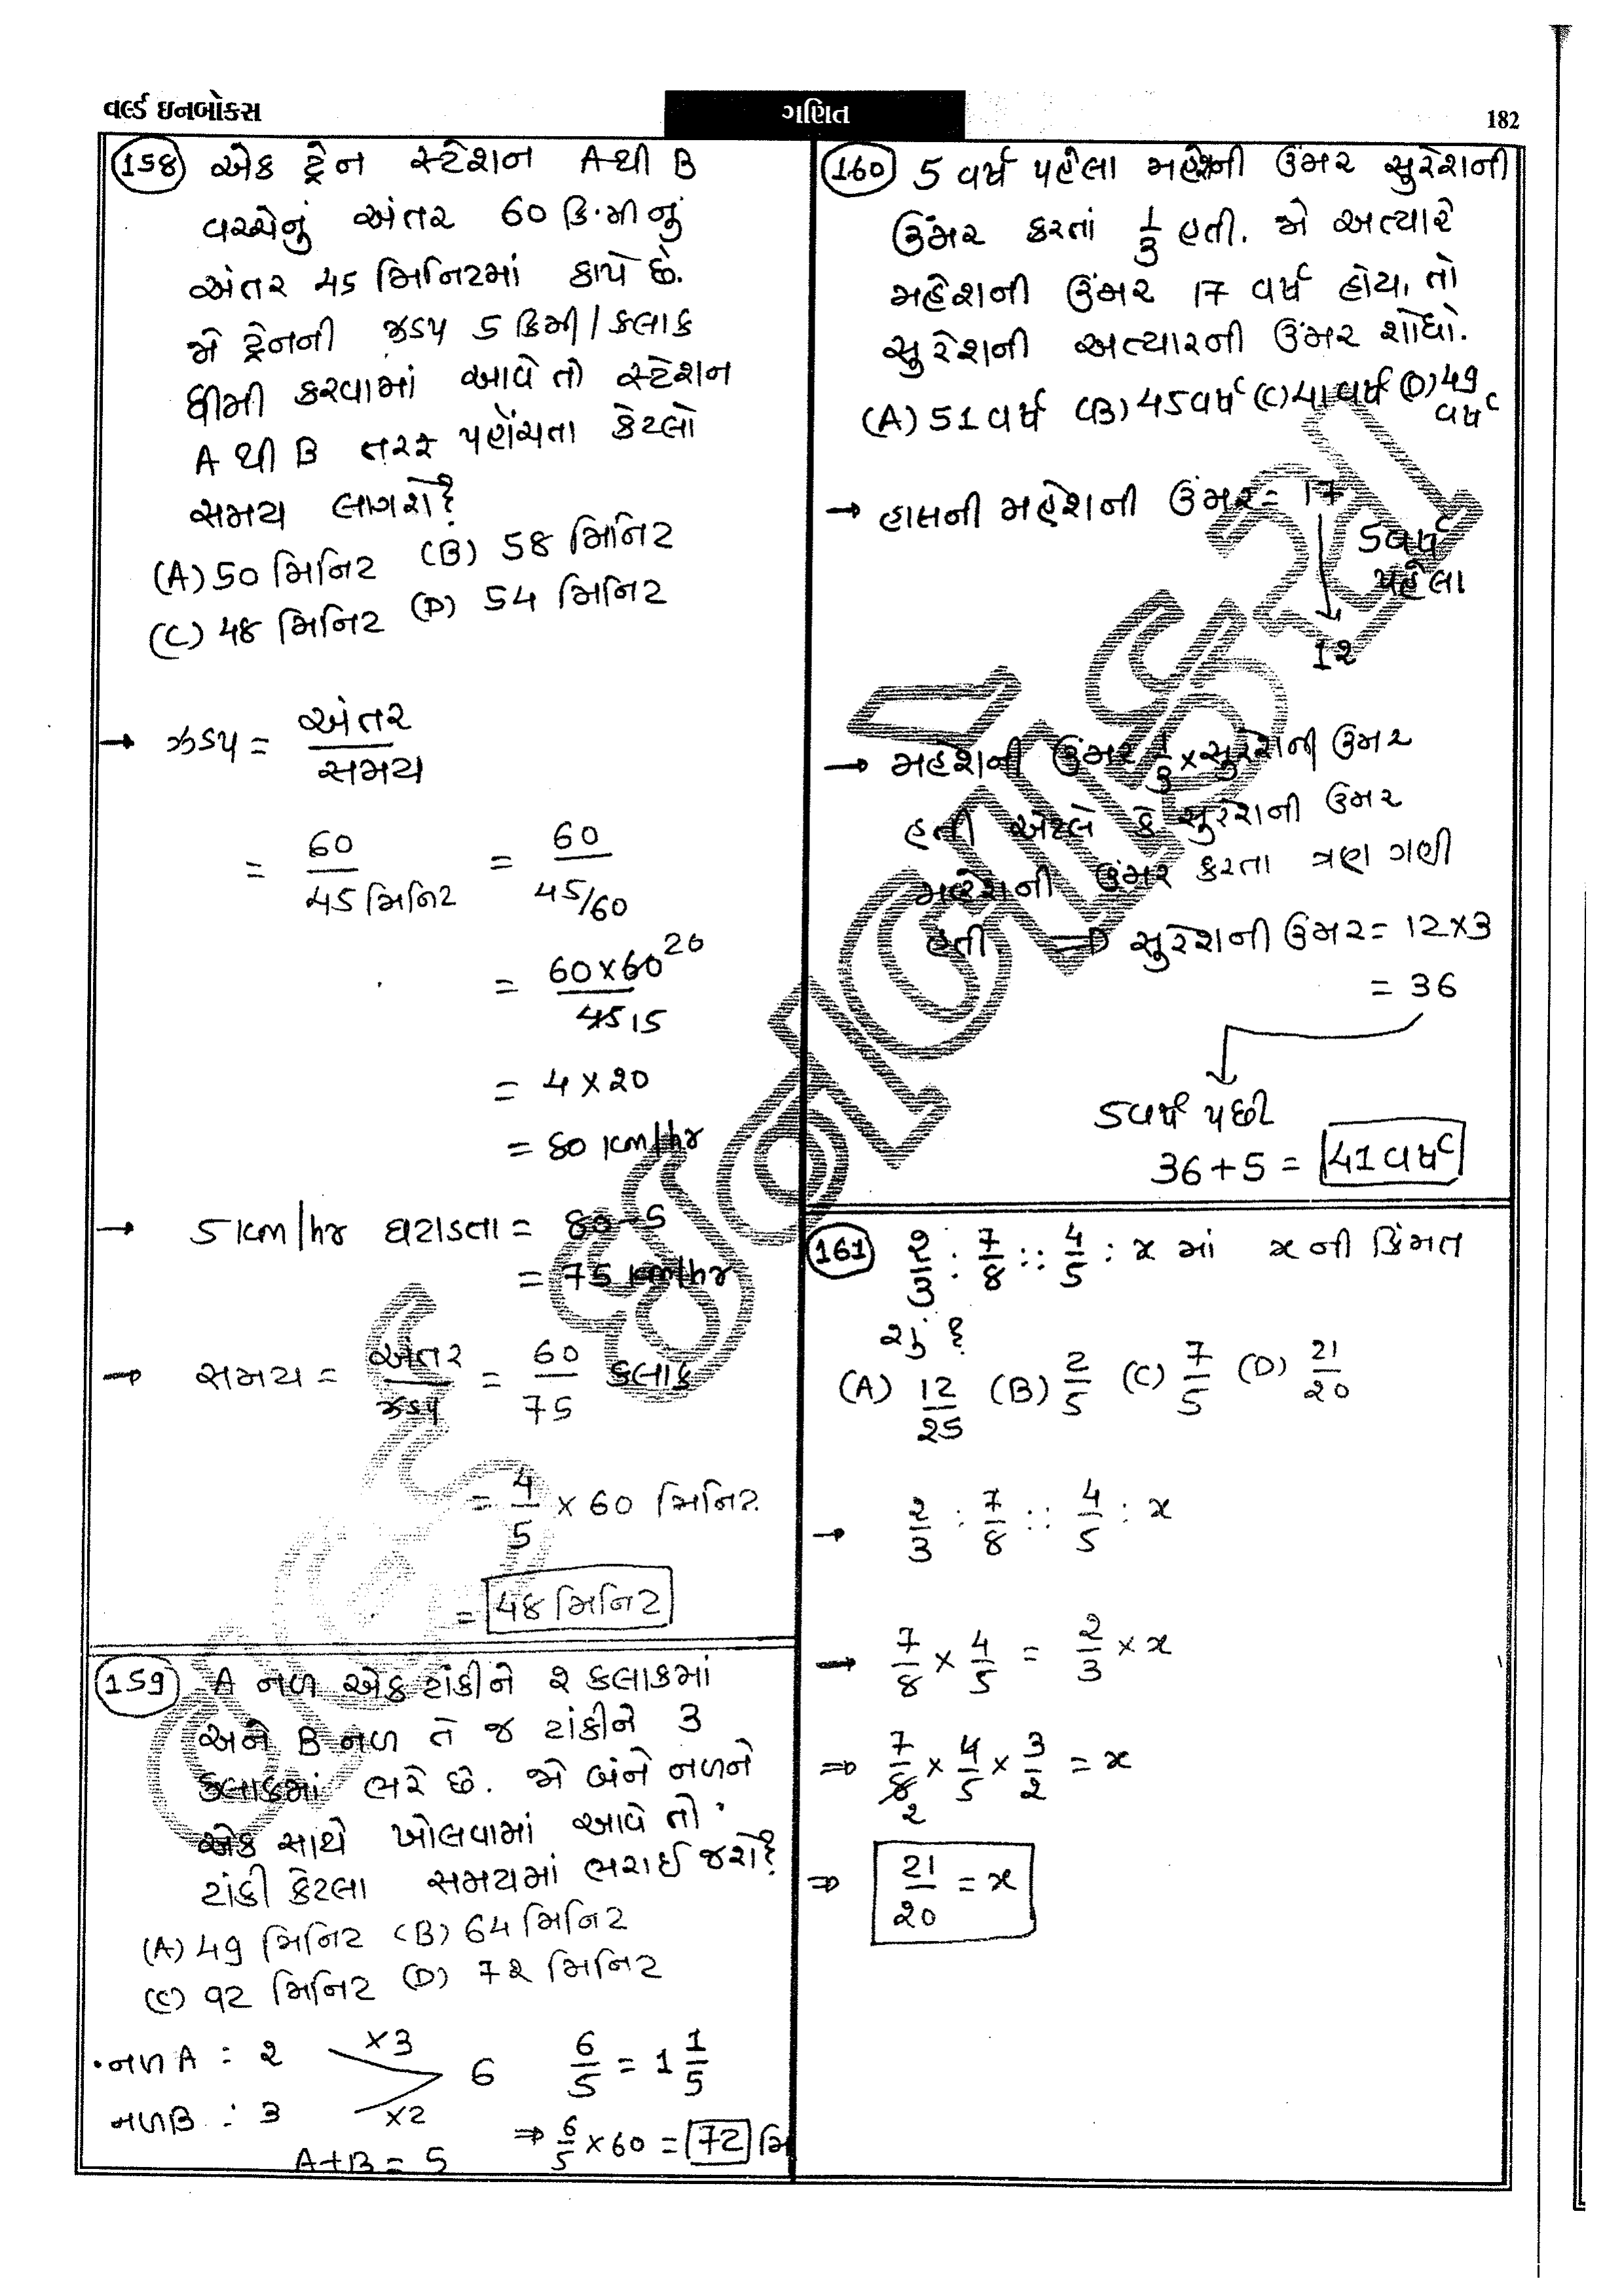 વર્લ્ડ ઇનબોકસ
ગણિત
182
158 એક ટ્રેન સ્ટેશન A થી B
વચ્ચેનું અંતર 60 કિ.મી નું
અંતર 45 મિનિટમાં કાપે છે.
જો ટ્રેનની ઝડપ 5 કિમી/કલાક
ધીમી કરવામાં આવે તો સ્ટેશન
A થી B તરફ પહોંચતા કેટલો
સમય લાગશે?
(A) 50 મિનિટ (B) 58 મિનિટ
(C) 48 મિનિટ (D) 54 મિનિટ
→ ઝડપ = અંતર / સમય
= 60 / 45 મિનિટ = 60 / 45/60
= 60 × 60 20 / 45 15
= 4 × 20
= 80 km/hr
→ 5 km/hr ઘટાડતા = 80 - 5
= 75 km/hr
→ સમય = અંતર / ઝડપ = 60 / 75 કલાક
= 4/5 × 60 મિનિટ
= 48 મિનિટ
159 A નળ એક ટાંકીને ૨ કલાકમાં
અને B નળ તે જ ટાંકીને 3
કલાકમાં ભરે છે. જો બંને નળને
એક સાથે ખોલવામાં આવે તો
ટાંકી કેટલા સમયમાં ભરાઈ જશે?
(A) 49 મિનિટ (B) 64 મિનિટ
(C) 92 મિનિટ (D) 7૨ મિનિટ
• નળ A : ૨ ×3 6 6/5 = 1 1/5
નળ B : 3 ×2 ⇒ 6/5 × 60 = 72 મિ
A+B = 5
160 5 વર્ષ પહેલા મહેશની ઉંમર સુરેશની
ઉંમર કરતાં 1/3 હતી. જો અત્યારે
મહેશની ઉંમર 17 વર્ષ હોય, તો
સુરેશની અત્યારની ઉંમર શોધો.
(A) 51 વર્ષ (B) 45 વર્ષ (C) 41 વર્ષ (D) 49 વર્ષ
→ હાલની મહેશની ઉંમર = 17
5 વર્ષ
પહેલા
1૨
→ મહેશની ઉંમર 1/3 × સુરેશની ઉંમર
હતી એટલે કે સુરેશની ઉંમર
મહેશની ઉંમર કરતા ત્રણ ગણી
હતી ⇒ સુરેશની ઉંમર = 12 × 3
= 36
5 વર્ષ પછી
36 + 5 = 41 વર્ષ
161 ૨/3 : 7/8 :: 4/5 : x માં x ની કિંમત
શું ?
(A) 12/૨5 (B) 2/5 (C) 7/5 (D) 21/૨0
→ ૨/3 : 7/8 :: 4/5 : x
→ 7/8 × 4/5 = 2/3 × x
⇒ 7/8 ૨ × 4/5 × 3/2 = x
⇒ 21/૨0 = x